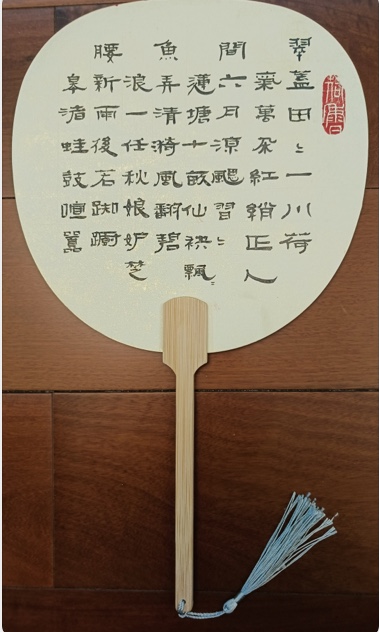 翠蓋田〻一川荷
萬朵紅綃正人
間六月涼飈習〻
蓮塘十畝仙袂飄〻
魚弄清漪風翻碧
浪一任秋娘妒楚
腰新雨後若踟躕
皋渚蛙鼓喧囂